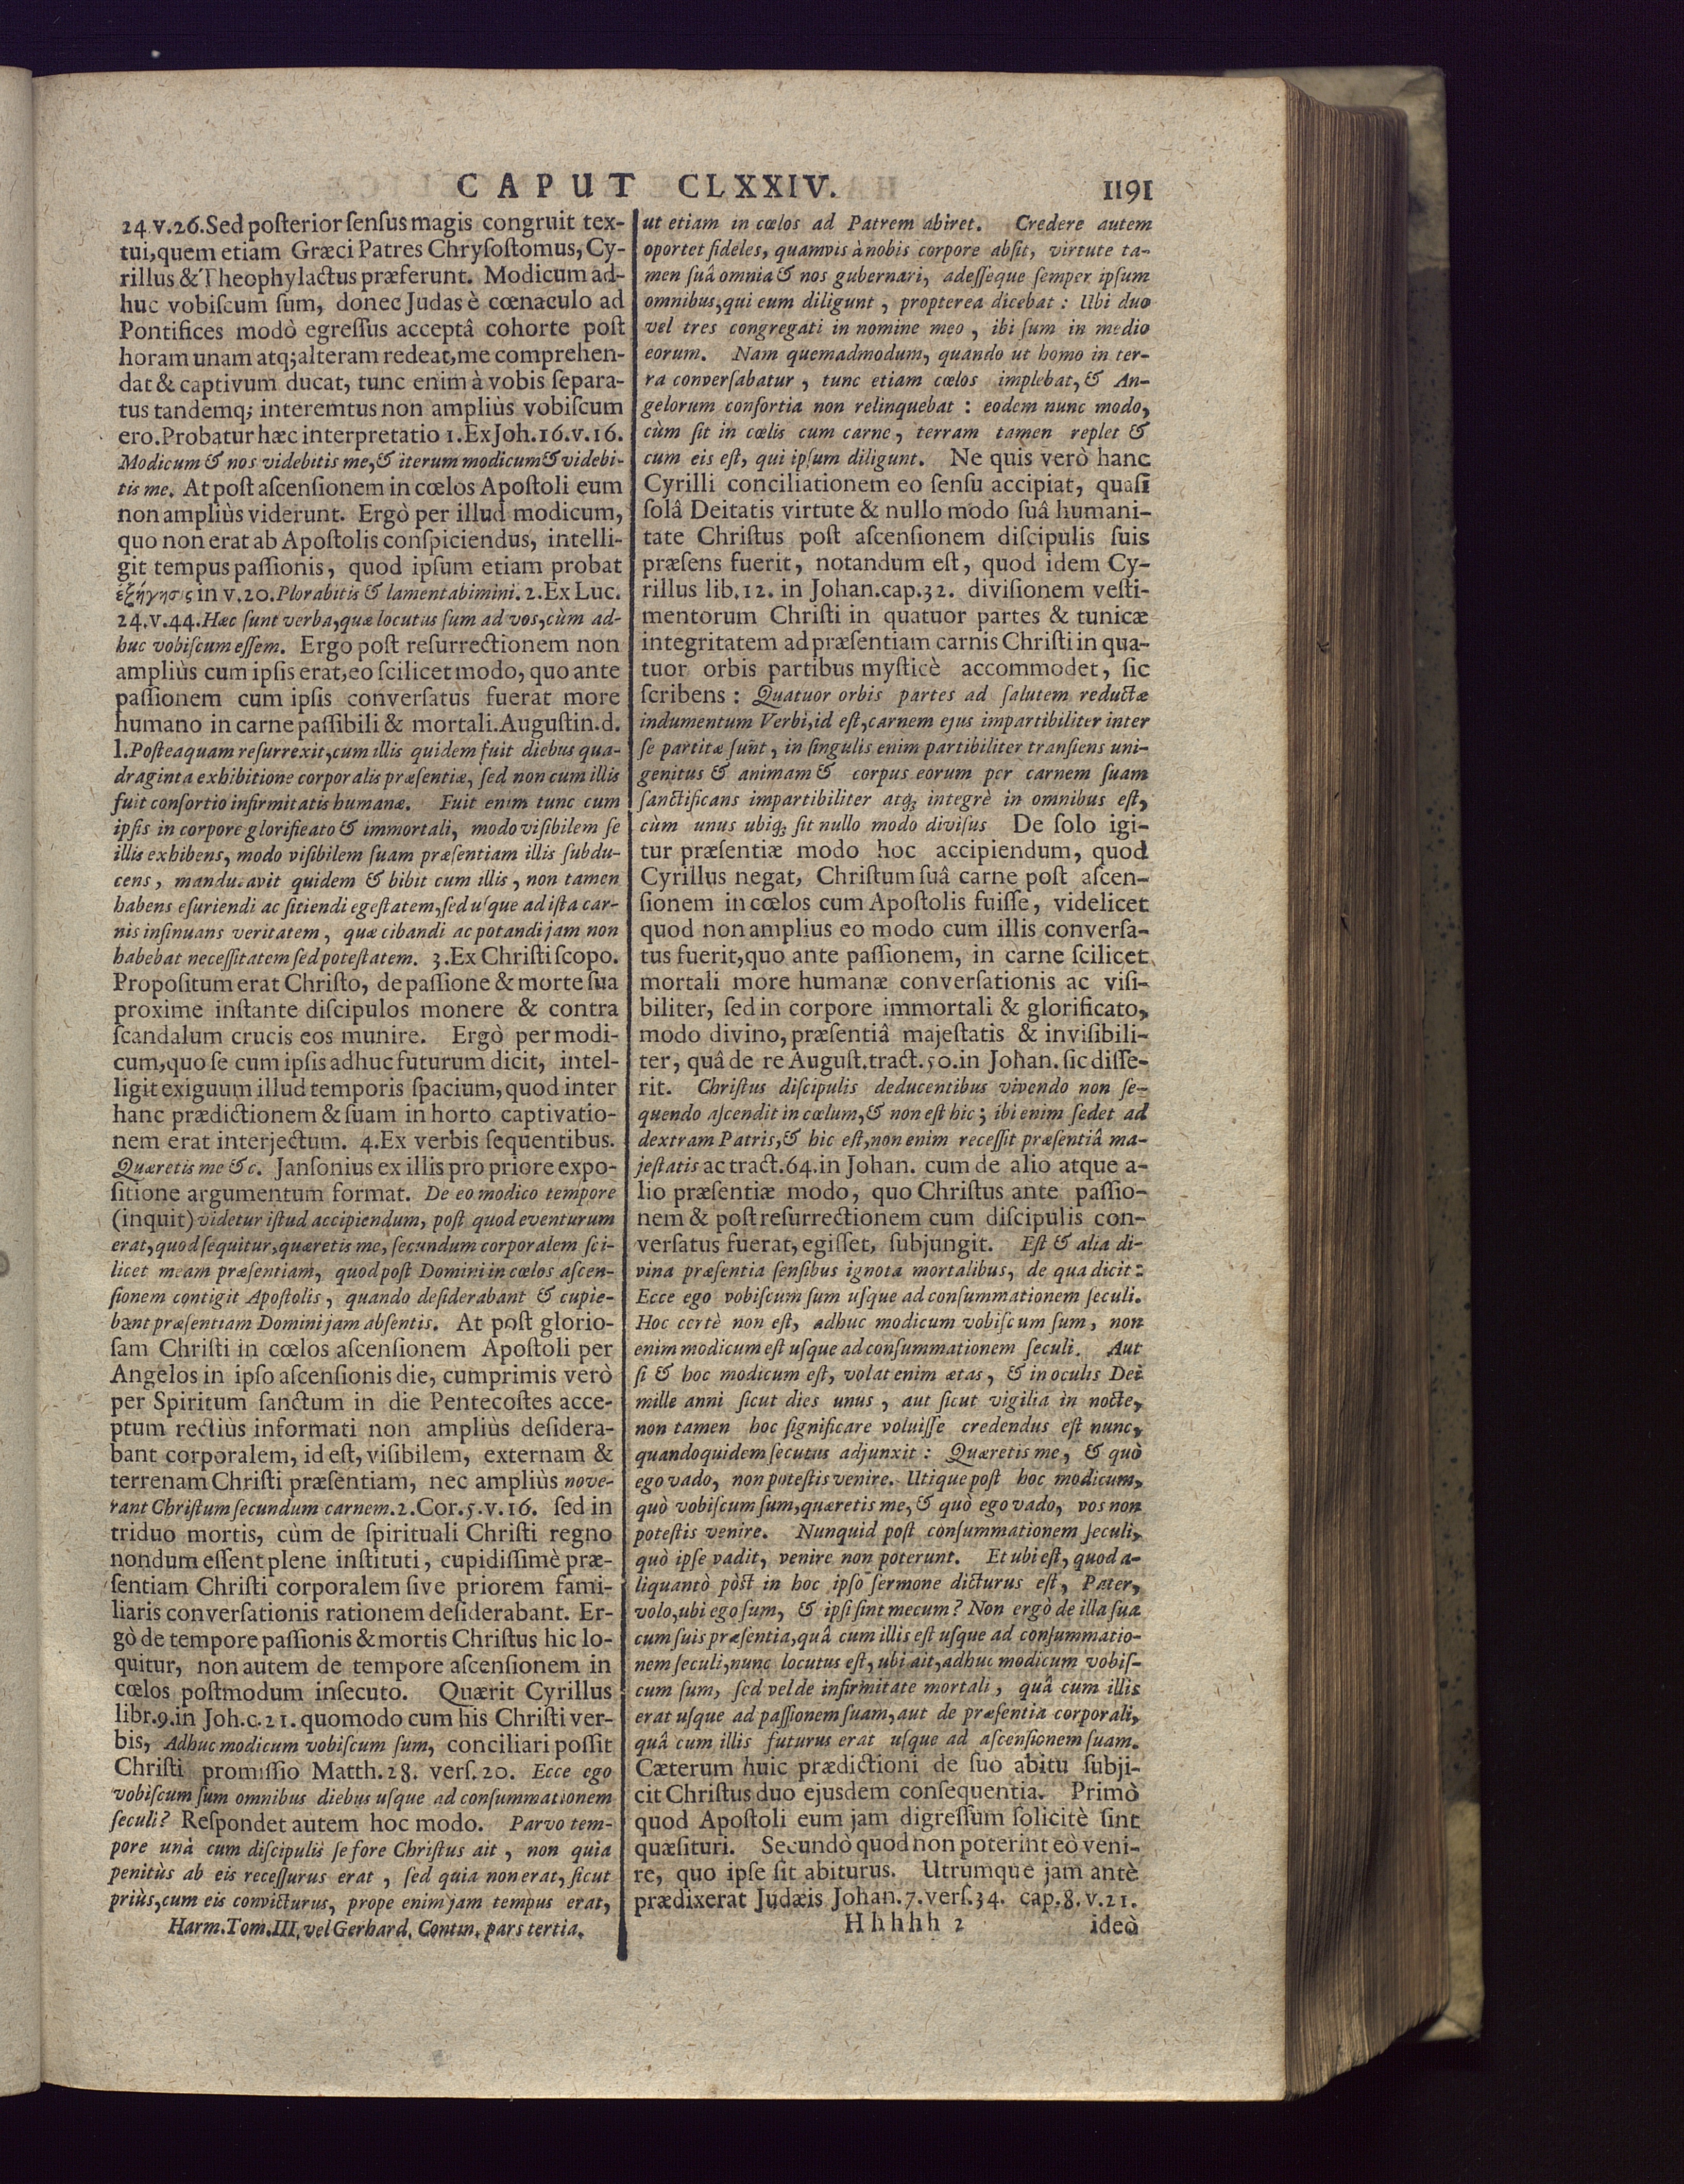 CAPUT CLXXIV. 1191
24.v.26. Sed posterior sensus magis congruit tex-
tui, quem etiam Græci Patres Chrysostomus, Cy-
rillus & Theophylactus præferunt. Modicum ad-
huc vobiscum sum, donec Judas è cœnaculo ad
Pontifices modò egressus acceptâ cohorte post
horam unam atq; alteram redeat, me comprehen-
dat & captivum ducat, tunc enim à vobis separa-
tus tandemq; interemtus non ampliùs vobiscum
ero. Probatur hæc interpretatio 1. Ex Joh.16.v.16.
Modicum & nos videbitis me, & iterum modicum & videbi-
tis me. At post ascensionem in cœlos Apostoli eum
non ampliùs viderunt. Ergò per illud modicum,
quo non erat ab Apostolis conspiciendus, intelli-
git tempus passionis, quod ipsum etiam probat
ἐξήγησις in v.20. Plorabitis & lamentabimini. 2. Ex Luc.
24.v.44. Hæc sunt verba, quæ locutus sum ad vos, cùm ad-
huc vobiscum essem. Ergo post resurrectionem non
ampliùs cum ipsis erat, eo scilicet modo, quo ante
passionem cum ipsis conversatus fuerat more
humano in carne passibili & mortali. Augustin.d.
l. Posteaquam resurrexit, cum illis quidem fuit diebus qua-
draginta exhibitione corporalis præsentiæ, sed non cum illis
fuit consortio infirmitatis humanæ. Fuit enim tunc cum
ipsis in corpore glorificato & immortali, modo visibilem se
illis exhibens, modo visibilem suam præsentiam illis subdu-
cens, manducavit quidem & bibit cum illis, non tamen
habens esuriendi ac sitiendi egestatem, sed usque ad ista car-
nis insinuans veritatem, quæ cibandi ac potandi jam non
habebat necessitatem sed potestatem. 3. Ex Christi scopo.
Propositum erat Christo, de passione & morte sua
proxime instante discipulos monere & contra
scandalum crucis eos munire. Ergò per modi-
cum, quo se cum ipsis adhuc futurum dicit, intel-
ligit exiguum illud temporis spacium, quod inter
hanc prædictionem & suam in horto captivatio-
nem erat interjectum. 4. Ex verbis sequentibus.
Quæretis me &c. Jansonius ex illis pro priore expo-
sitione argumentum format. De eo modico tempore
(inquit) videtur istud accipiendum, post quod eventurum
erat, quod sequitur, quæretis me, secundum corporalem sci-
licet meam præsentiam, quod post Domini in cœlos ascen-
sionem contigit Apostolis, quando desiderabant & cupie-
bant præsentiam Domini jam absentis. At post glorio-
sam Christi in cœlos ascensionem Apostoli per
Angelos in ipso ascensionis die, cumprimis verò
per Spiritum sanctum in die Pentecostes acce-
ptum rectiùs informati non ampliùs desidera-
bant corporalem, id est, visibilem, externam &
terrenam Christi præsentiam, nec ampliùs nove-
rant Christum secundum carnem. 2.Cor.5.v.16. sed in
triduo mortis, cùm de spirituali Christi regno
nondum essent plene instituti, cupidissimè præ-
sentiam Christi corporalem sive priorem fami-
liaris conversationis rationem desiderabant. Er-
gò de tempore passionis & mortis Christus hic lo-
quitur, non autem de tempore ascensionem in
cœlos postmodum insecuto. Quærit Cyrillus
libr.9. in Joh.c.21. quomodo cum his Christi ver-
bis, Adhuc modicum vobiscum sum, conciliari possit
Christi promissio Matth.28. vers.20. Ecce ego
vobiscum sum omnibus diebus usque ad consummationem
seculi? Respondet autem hoc modo. Parvo tem-
pore unà cum discipulis se fore Christus ait, non quia
penitùs ab eis recessurus erat, sed quia non erat, sicut
priùs, cum eis convicturus, prope enim jam tempus erat,
Harm. Tom. III. vel Gerhard. Contin. pars tertia.
ut etiam in cœlos ad Patrem abiret. Credere autem
oportet fideles, quamvis à nobis corpore absit, virtute ta-
men suâ omnia & nos gubernari, adesseque semper ipsum
omnibus, qui eum diligunt, propterea dicebat: Ubi duo
vel tres congregati in nomine meo, ibi sum in medio
eorum. Nam quemadmodum, quando ut homo in ter-
ra conversabatur, tunc etiam cœlos implebat, & An-
gelorum consortia non relinquebat: eodem nunc modo,
cùm sit in cœlis cum carne, terram tamen replet &
cum eis est, qui ipsum diligunt. Ne quis verò hanc
Cyrilli conciliationem eo sensu accipiat, quasi
solâ Deitatis virtute & nullo modo suâ humani-
tate Christus post ascensionem discipulis suis
præsens fuerit, notandum est, quod idem Cy-
rillus lib.12. in Johan.cap.32. divisionem vesti-
mentorum Christi in quatuor partes & tunicæ
integritatem ad præsentiam carnis Christi in qua-
tuor orbis partibus mysticè accommodet, sic
scribens: Quatuor orbis partes ad salutem reductæ
indumentum Verbi, id est, carnem ejus impartibiliter inter
se partitæ sunt, in singulis enim partibiliter transiens uni-
genitus & animam & corpus eorum per carnem suam
sanctificans impartibiliter atq; integrè in omnibus est,
cùm unus ubiq; sit nullo modo divisus De solo igi-
tur præsentiæ modo hoc accipiendum, quod
Cyrillus negat, Christum suâ carne post ascen-
sionem in cœlos cum Apostolis fuisse, videlicet
quod non amplius eo modo cum illis conversa-
tus fuerit, quo ante passionem, in carne scilicet
mortali more humanæ conversationis ac visi-
biliter, sed in corpore immortali & glorificato,
modo divino, præsentiâ majestatis & invisibili-
ter, quâ de re August. tract.50. in Johan. sic disse-
rit. Christus discipulis deducentibus vivendo non se-
quendo ascendit in cœlum, & non est hic; ibi enim sedet ad
dextram Patris, & hic est, non enim recessit præsentiâ ma-
jestatis ac tract.64. in Johan. cum de alio atque a-
lio præsentiæ modo, quo Christus ante passio-
nem & post resurrectionem cum discipulis con-
versatus fuerat, egisset, subjungit. Est & alia di-
vina præsentia sensibus ignota mortalibus, de qua dicit:
Ecce ego vobiscum sum usque ad consummationem seculi.
Hoc certè non est, adhuc modicum vobiscum sum, non
enim modicum est usque ad consummationem seculi. Aut
si & hoc modicum est, volat enim ætas, & in oculis Dei
mille anni sicut dies unus, aut sicut vigilia in nocte,
non tamen hoc significare voluisse credendus est nunc,
quandoquidem secutus adjunxit: Quæretis me, & quò
ego vado, non potestis venire. Utique post hoc modicum,
quò vobiscum sum, quæretis me, & quò ego vado, vos non
potestis venire. Nunquid post consummationem seculi,
quò ipse vadit, venire non poterunt. Et ubi est, quod a-
liquantò pòst in hoc ipso sermone dicturus est, Pater,
volo, ubi ego sum, & ipsi sint mecum? Non ergò de illa sua
cum suis præsentia, quâ cum illis est usque ad consummatio-
nem seculi, nunc locutus est, ubi ait, adhuc modicum vobis-
cum sum, sed vel de infirmitate mortali, quâ cum illis
erat usque ad passionem suam, aut de præsentia corporali,
quâ cum illis futurus erat usque ad ascensionem suam.
Cæterum huic prædictioni de suo abitu subji-
cit Christus duo ejusdem consequentia. Primò
quod Apostoli eum jam digressum solicitè sint
quæsituri. Secundò quod non poterint eò veni-
re, quo ipse sit abiturus. Utrumque jam antè
prædixerat Judæis Johan.7.vers.34. cap.8.v.21.
Hhhhh 2 ideò